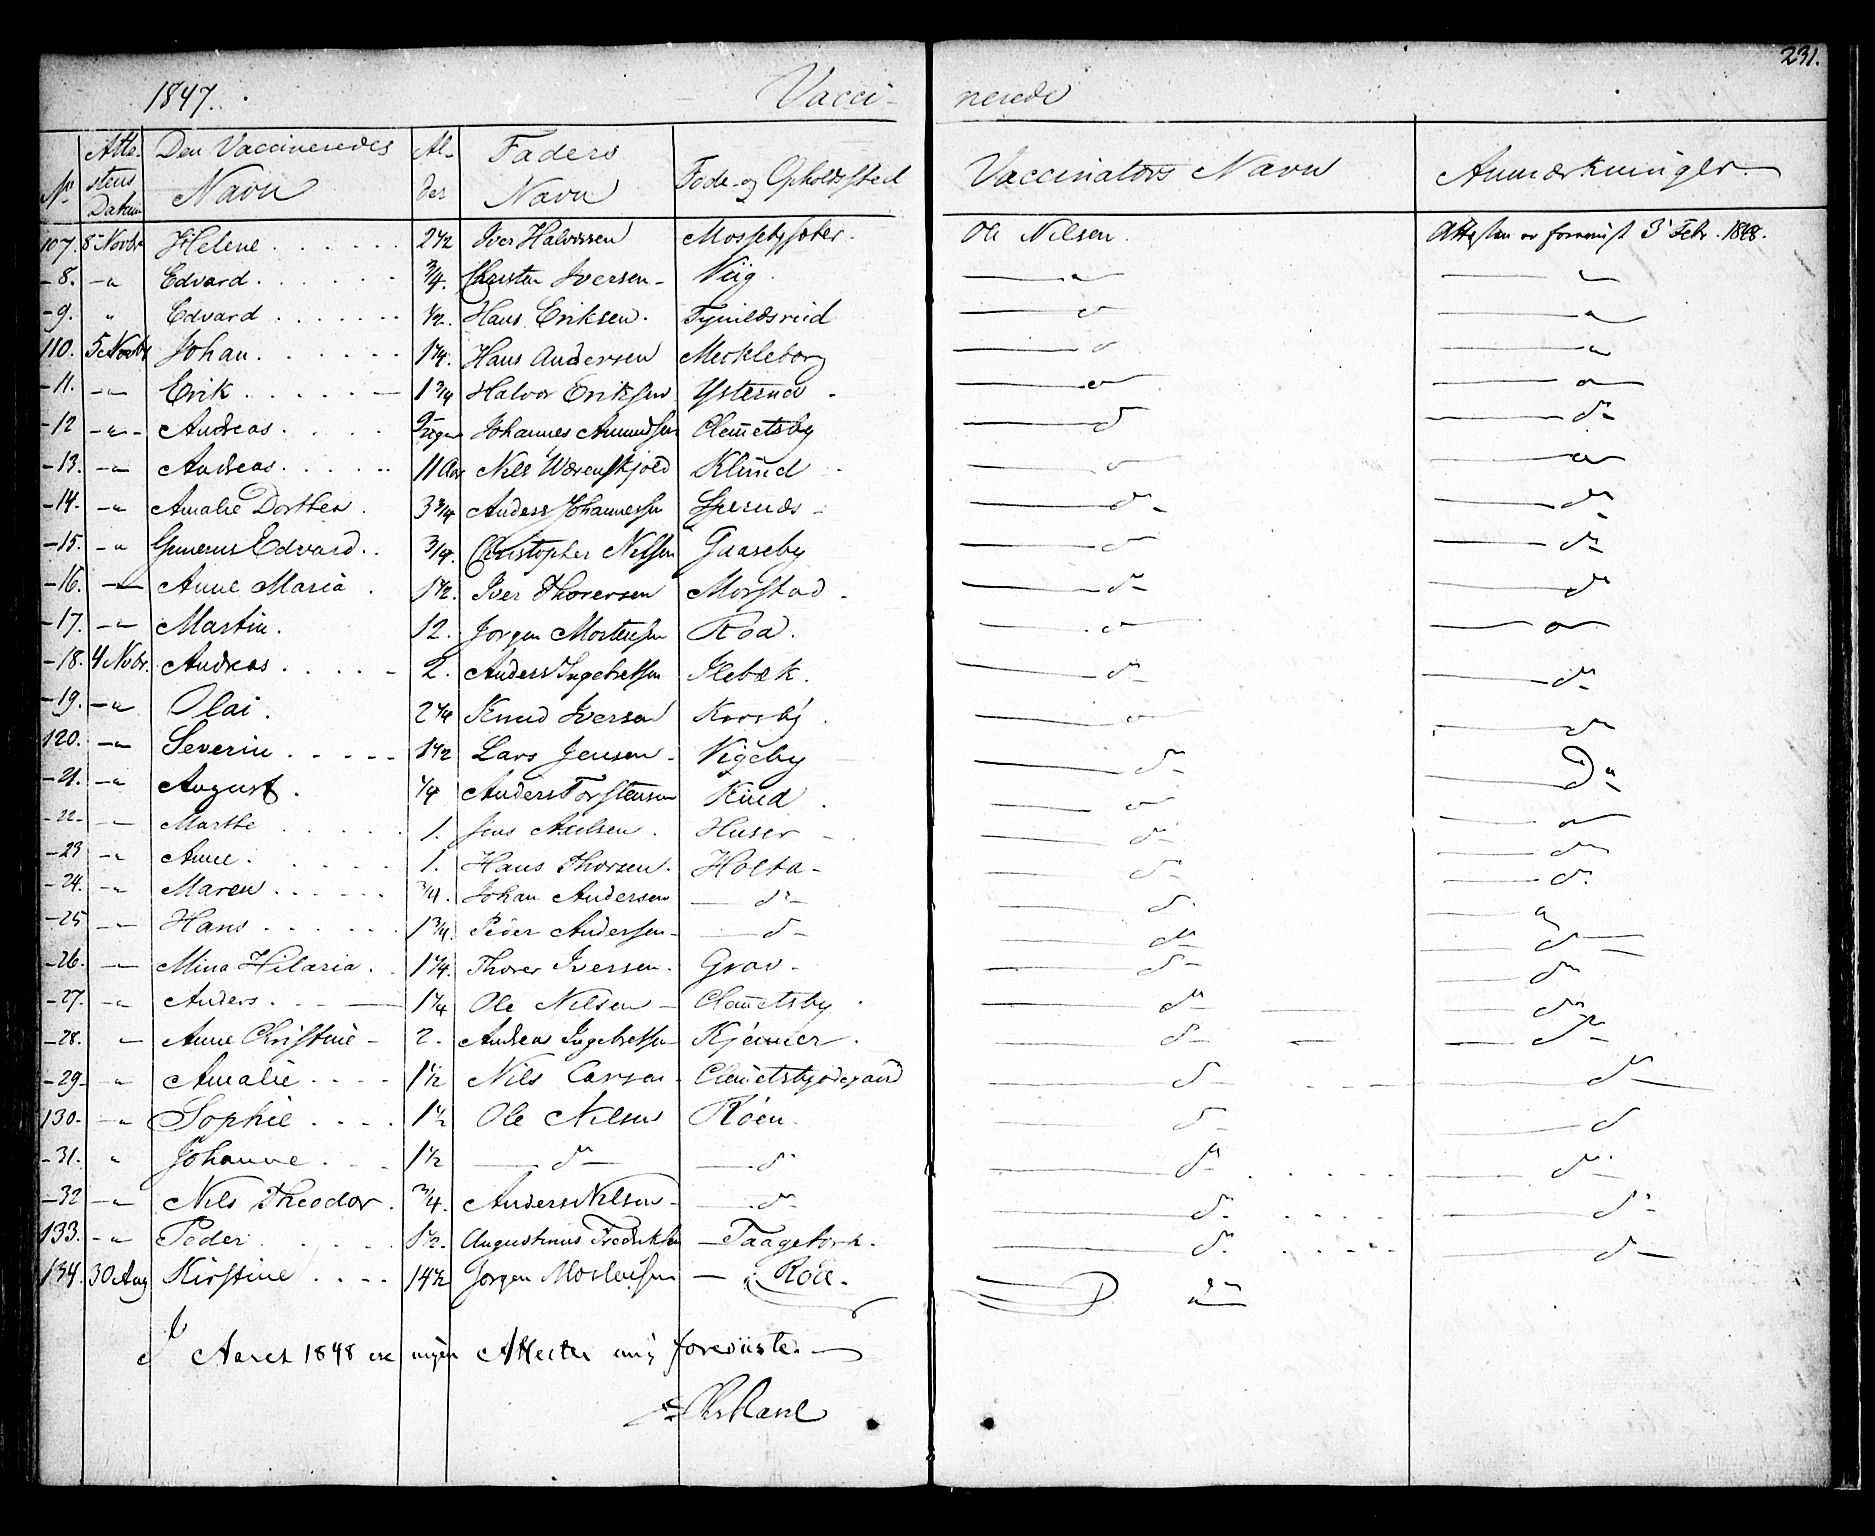 231.
1847. Vaccinerede
No Attestens Datum Den Vaccineredes Navn Alder Faders Navn Føde- og Opholdssted Vaccinators Navn Anmærkninger
107. 8 Novbr Helene 2 1/2 Iver Halvorsen Ole Nilsen. Attesten er forevist 3 Febr. 1848.
-8. -"- Edvard 3/4. Christen Iversen - Viig -"- -"-
-9. " Edvard 1/2. Hans Eriksen. -"- -"-
110. 5 Novbr Johan. 1 1/4. Hans Andersen Mekleborg -"- -"-
-11. -"- Erik 1 3/4 Halvor Eriksen Ysternes -"- -"-
-12 -"- Andreas. Johannes Amundsen Clemetsby do do
-13. -"- Andreas. 11 Aar Nils Werenskjold Klund -"- -"-
-14. -"- Amalie Dorthea. 3 3/4 Anders Johannessen Spernes do do
-15. -"- Gunerus Edvard. 3/4. Christopher Nilsen Gaaseby do do
-16. -"- Anne Maria 1 1/2. Iver Thoresen Morstad do do
-17. -"- Martin. 12. Jørgen Mortensen Roa. -"- -"-
-18. 4 Novbr. Andreas 2. Anders Ingebretsen Ilebæk. do do
-19. -"- Olai. 2 1/4 Knud Iversen Korsby -"- do
120. -"- Severin 1 1/2 Lars Jensen - Vigeby do Do
-21. -"- August. 1/4 Anders Torstensen Kind -"-
-22- -"- Marthe 1. Jens Nielsen. Huser do -"-
-23 -"- Anne. 1. Hans Thorsen. Holta - do do
-24. -"- Maren 3/4. Johan Andersen do do do
-25 -"- Hans 1 3/4. Peder Andersen - do do "
-26. -"- Mina Hilaria 1 1/4. Thorer Iversen. Grav - do do
-27. -"- Anders. 1 1/4 Ole Nilsen - Clemetsby do do
-28. " Anne Christine - 2. Andreas Ingebretsen Kjenner do do
-29- " Amalie 1 1/2 Nils Larsen - Clemetsbyødegaard do do
130. -"- Sophie 1 1/2 Ole Nilsen Roen. do do
-31. " Johanne 1 1/2 do do do do
-32 -"- Nils Theodor. 3/4. Anders Nilsen - do do do
133. -"- Peder 1 1/2. Augustinus Fredriksen - Taagetorp. do do
134. 30 Aug Kirstine 14 1/2 Jørgen Mortensen - Roa. do
I Aaret 1848 ere ingen Attester mig foreviiste. -